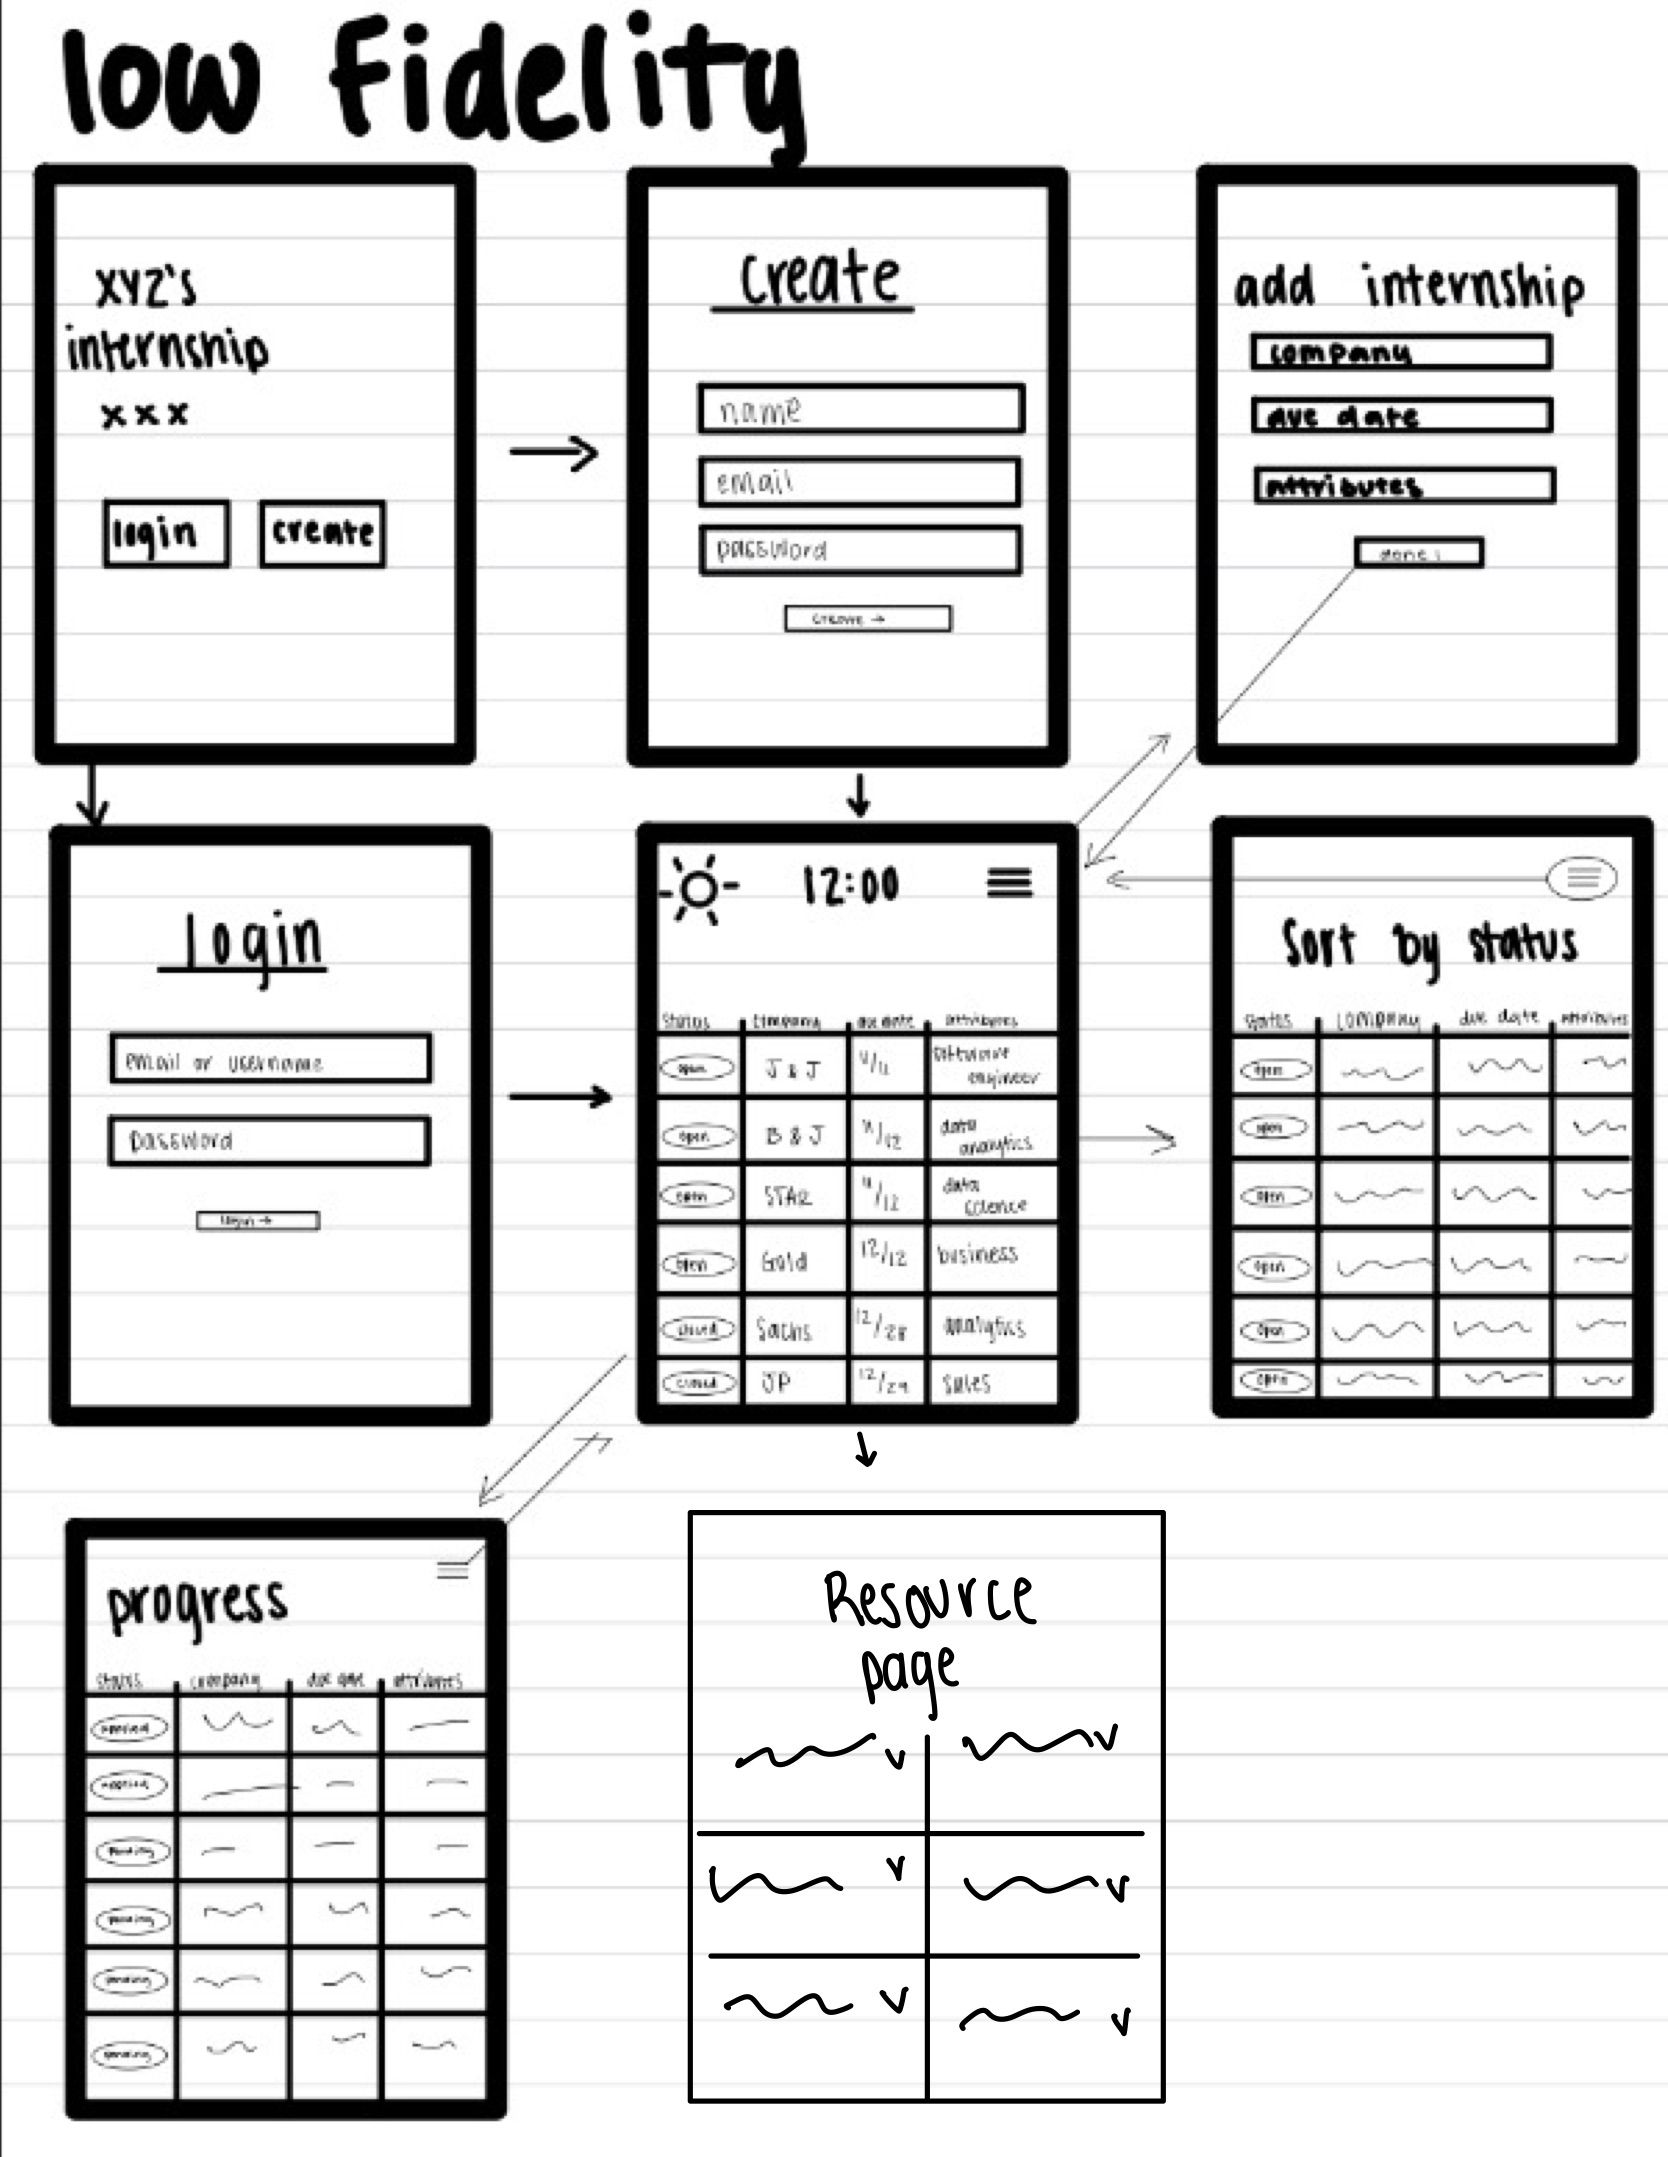 low fidelity
XYZ's
internship
xxx
login
create
create
name
email
password
create →
add internship
company
due date
attributes
done!
login
email or username
password
login →
12:00
status company due date attributes
open J & J 11/11 software engineer
open B & J 11/12 data analytics
open STAR 11/12 data science
open Gold 12/12 business
closed Sachs 12/28 analytics
closed JP 12/29 sales
Sort by status
status company due date attributes
open
open
open
open
open
open
progress
status company due date attributes
applied
applied
pending
pending
pending
pending
Resource
page